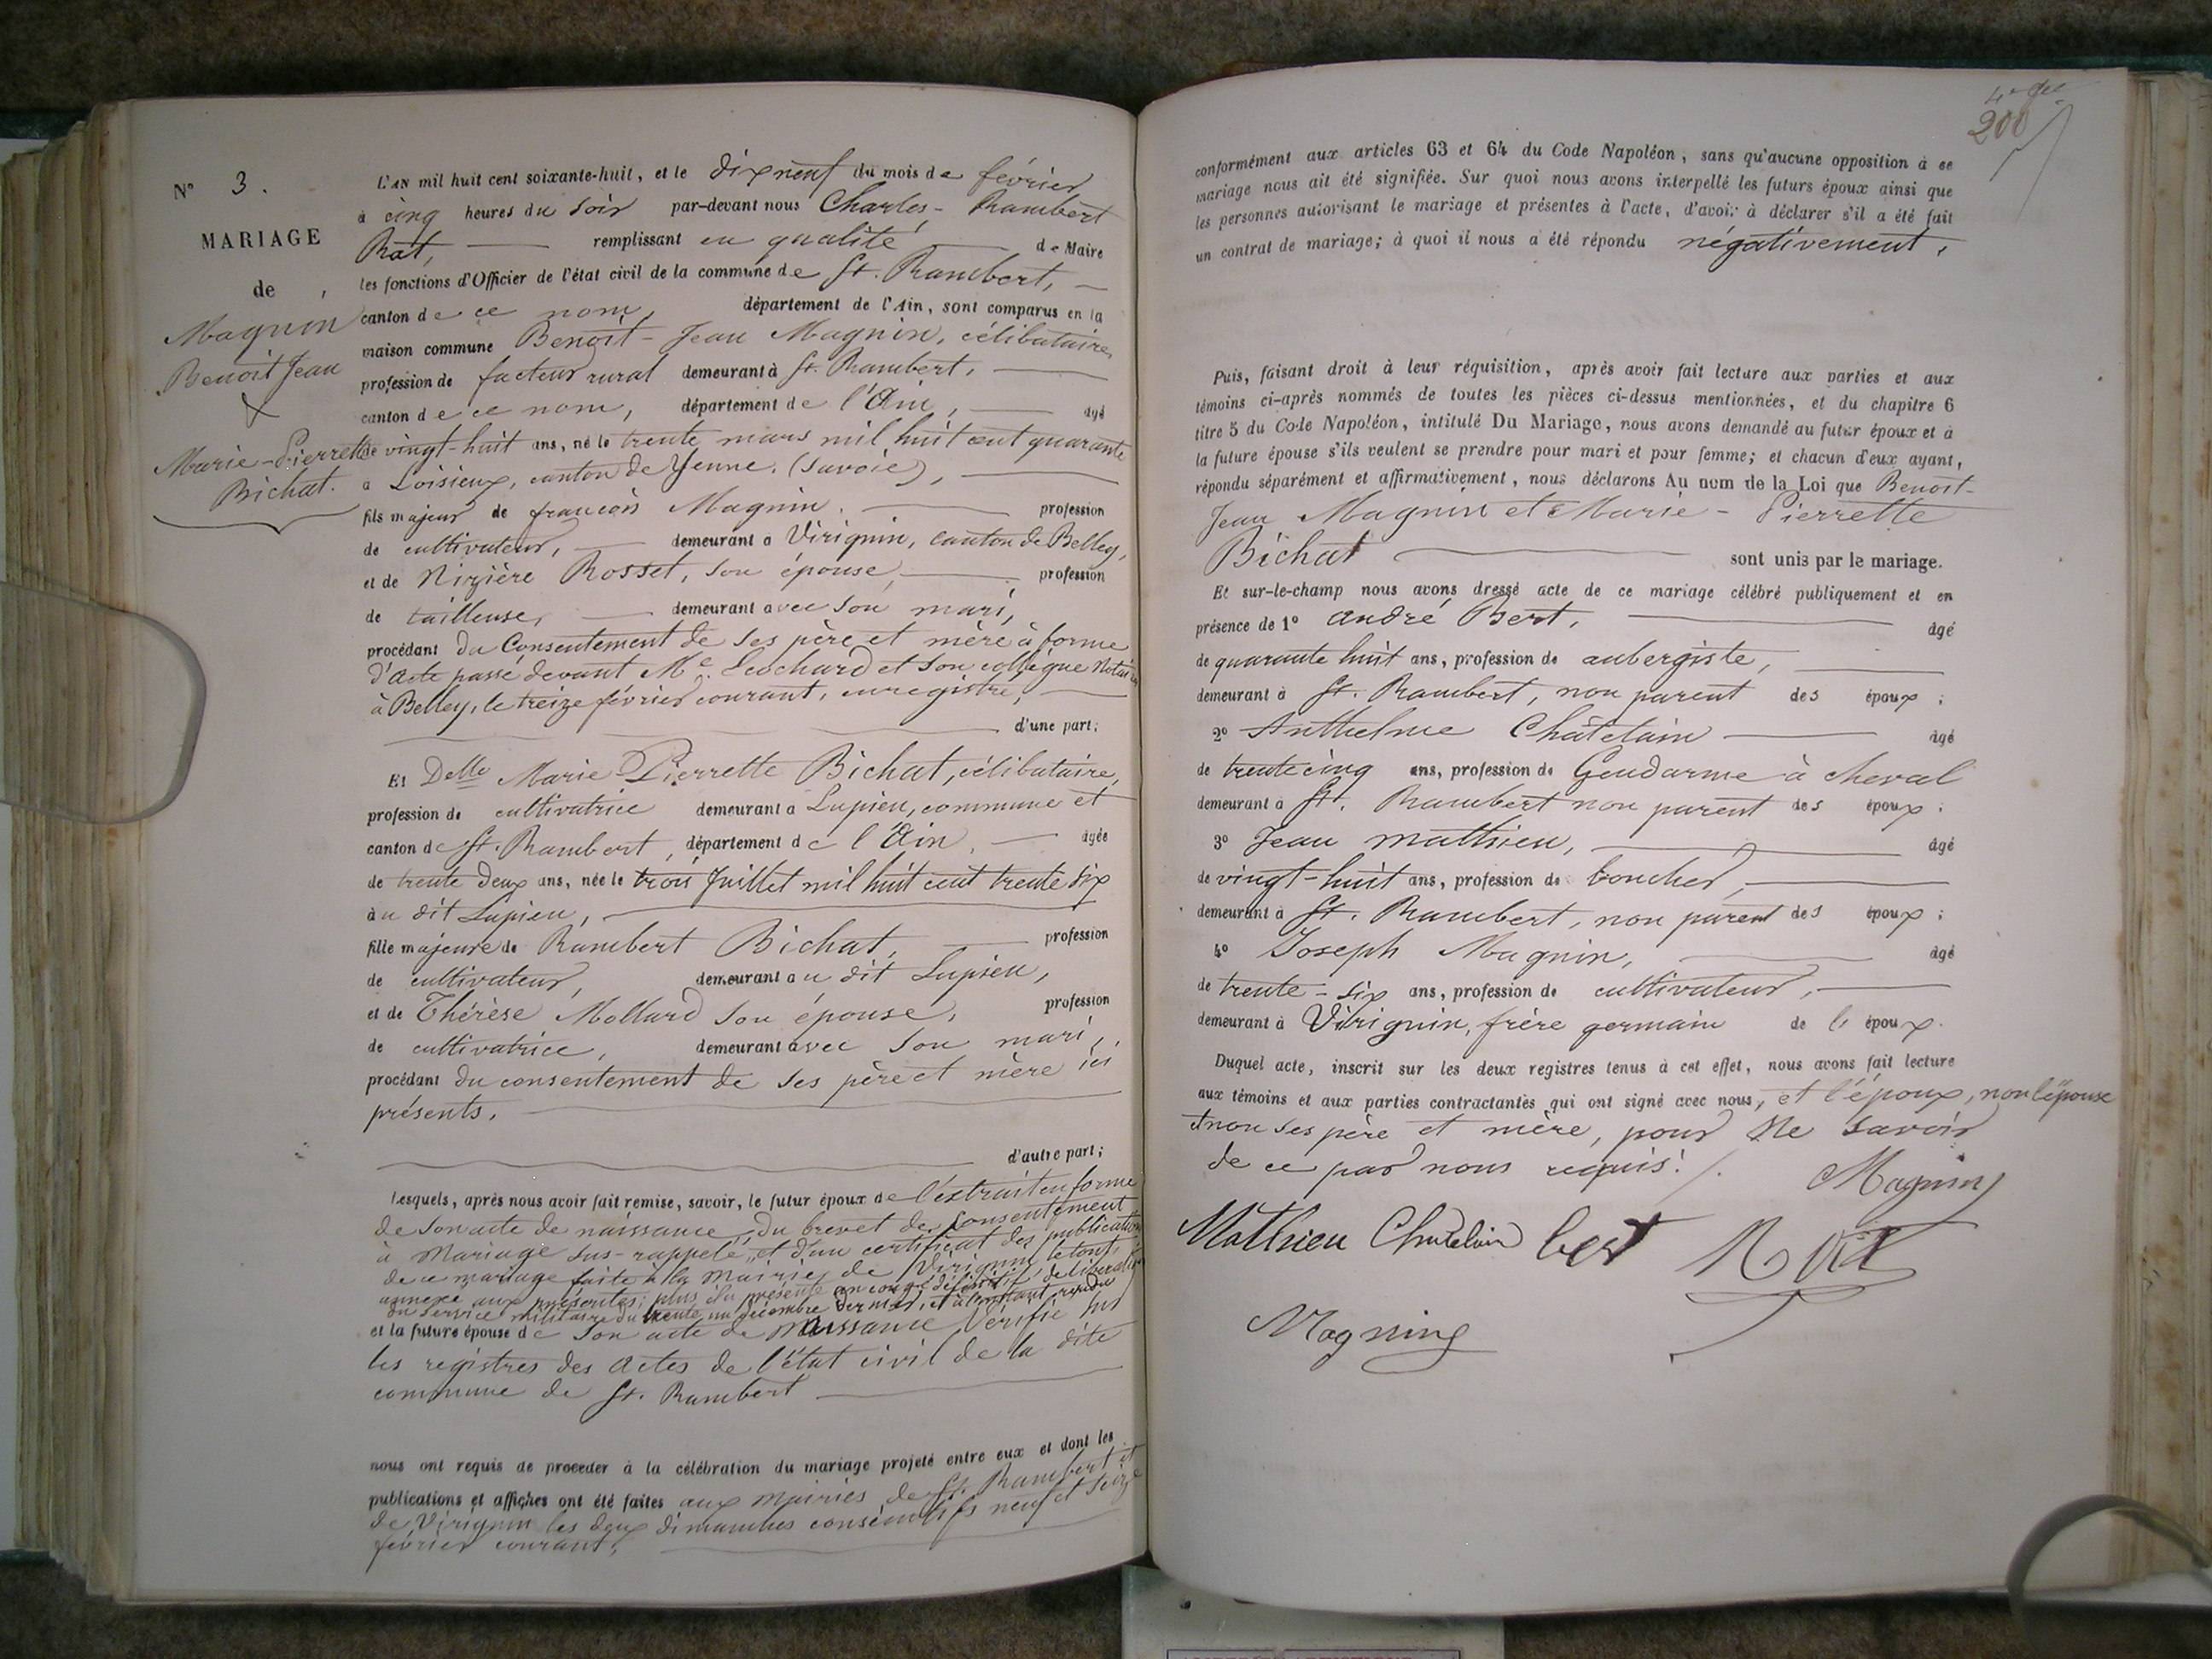 N° 3.
MARIAGE
de
Magnin
Benoit Jean
X
Marie-Pierrette
Bichat.
L'AN mil huit cent soixante-huit, et le dix neuf du mois de février
à cinq heures du soir par-devant nous Charles-Rambert
Rat, remplissant en qualité de Maire
les fonctions d'Officier de l'état civil de la commune de St. Rambert,
canton de ce nom, département de l'Ain, sont comparus en la
maison commune Benoit-Jean Magnin, célibataire,
profession de facteur rural demeurant à St. Rambert,
canton de ce nom, département de l'Ain, âgé
de vingt-huit ans, né le trente mars mil huit cent quarante
a Loisieux, canton de Yenne. (Savoie),
fils majeur de françois Magnin. profession
de cultivateur, demeurant a Virignin, canton de Belley,
et de Nizière Rosset, son épouse, profession
de tailleuse, demeurant avec son mari,
procédant du Consentement de ses père et mère à forme
d'acte passé devant Me. et son collègue Notaires
à Belley, le treize février courant, enregistré,
d'une part;
Et Delle Marie Pierrette Bichat, célibataire,
profession de cultivatrice demeurant a Lupieu, commune et
canton de St. Rambert, département de l'Ain, âgée
de trente deux ans, née le trois Juillet mil huit cent trente six
au dit Lupieu,
fille majeure de Rambert Bichat, profession
de cultivateur, demeurant au dit Lupieu,
et de Thérèse Mollard son épouse, profession
de cultivatrice, demeurant avec son mari,
procédant du consentement de ses père et mère ici
présents,
d'autre part;
Lesquels, après nous avoir fait remise, savoir, le futur époux de l'extrait en forme
de son acte de naissance, du brevet de Consentement
à Mariage sus-rappelé, et d'un certificat des publications
de ce mariage faite à la Mairie de Virignin, le tout
annexé aux présentes; plus il a présenté un congé définitif de libération
du service militaire du trente un décembre dernier, et à l'instant rendu
et la future épouse de Son acte de naissance Vérifié sur
les registres des actes de l'état civil de la dite
commune de St. Rambert
nous ont requis de procéder à la célébration du mariage projeté entre eux et dont les
publications et affiches ont été faites aux mairies de St. Rambert et
de Virignin les deux dimanches consécutifs neuf et seize
février courant,
200
conformément aux articles 63 et 64 du Code Napoléon, sans qu'aucune opposition à ce
mariage nous ait été signifiée. Sur quoi nous avons interpellé les futurs époux ainsi que
les personnes autorisant le mariage et présentes à l'acte, d'avoir à déclarer s'il a été fait
un contrat de mariage; à quoi il nous a été répondu négativement,
Puis, faisant droit à leur réquisition, après avoir fait lecture aux parties et aux
témoins ci-après nommés de toutes les pièces ci-dessus mentionnées, et du chapitre 6
titre 5 du Code Napoléon, intitulé Du Mariage, nous avons demandé au futur époux et à
la future épouse s'ils veulent se prendre pour mari et pour femme; et chacun d'eux ayant,
répondu séparément et affirmativement, nous déclarons Au nom de la Loi que Benoit-
Jean Magnin et Marie-Pierrette
Bichat sont unis par le mariage.
Et sur-le-champ nous avons dressé acte de ce mariage célébré publiquement et en
présence de 1° andré Bert, âgé
de quarante huit ans, profession de aubergiste,
demeurant à St. Rambert, non parent des époux;
2° Anthelme Châtelain âgé
de trente cinq ans, profession de Gendarme à cheval
demeurant à St. Rambert non parent des époux;
3° Jean Matthieu, âgé
de vingt-huit ans, profession de boucher,
demeurant à St. Rambert, non parent des époux;
4° Joseph Magnin, âgé
de trente-six ans, profession de cultivateur,
demeurant à Virignin, frère germain de l'époux.
Duquel acte, inscrit sur les deux registres tenus à cet effet, nous avons fait lecture
aux témoins et aux parties contractantes qui ont signé avec nous, et l'époux, non l'épouse
et non ses père et mère, pour Ne savoir
de ce par nous requis./.
Magnin
Mathieu Chatelain bert R Rat
Magnin